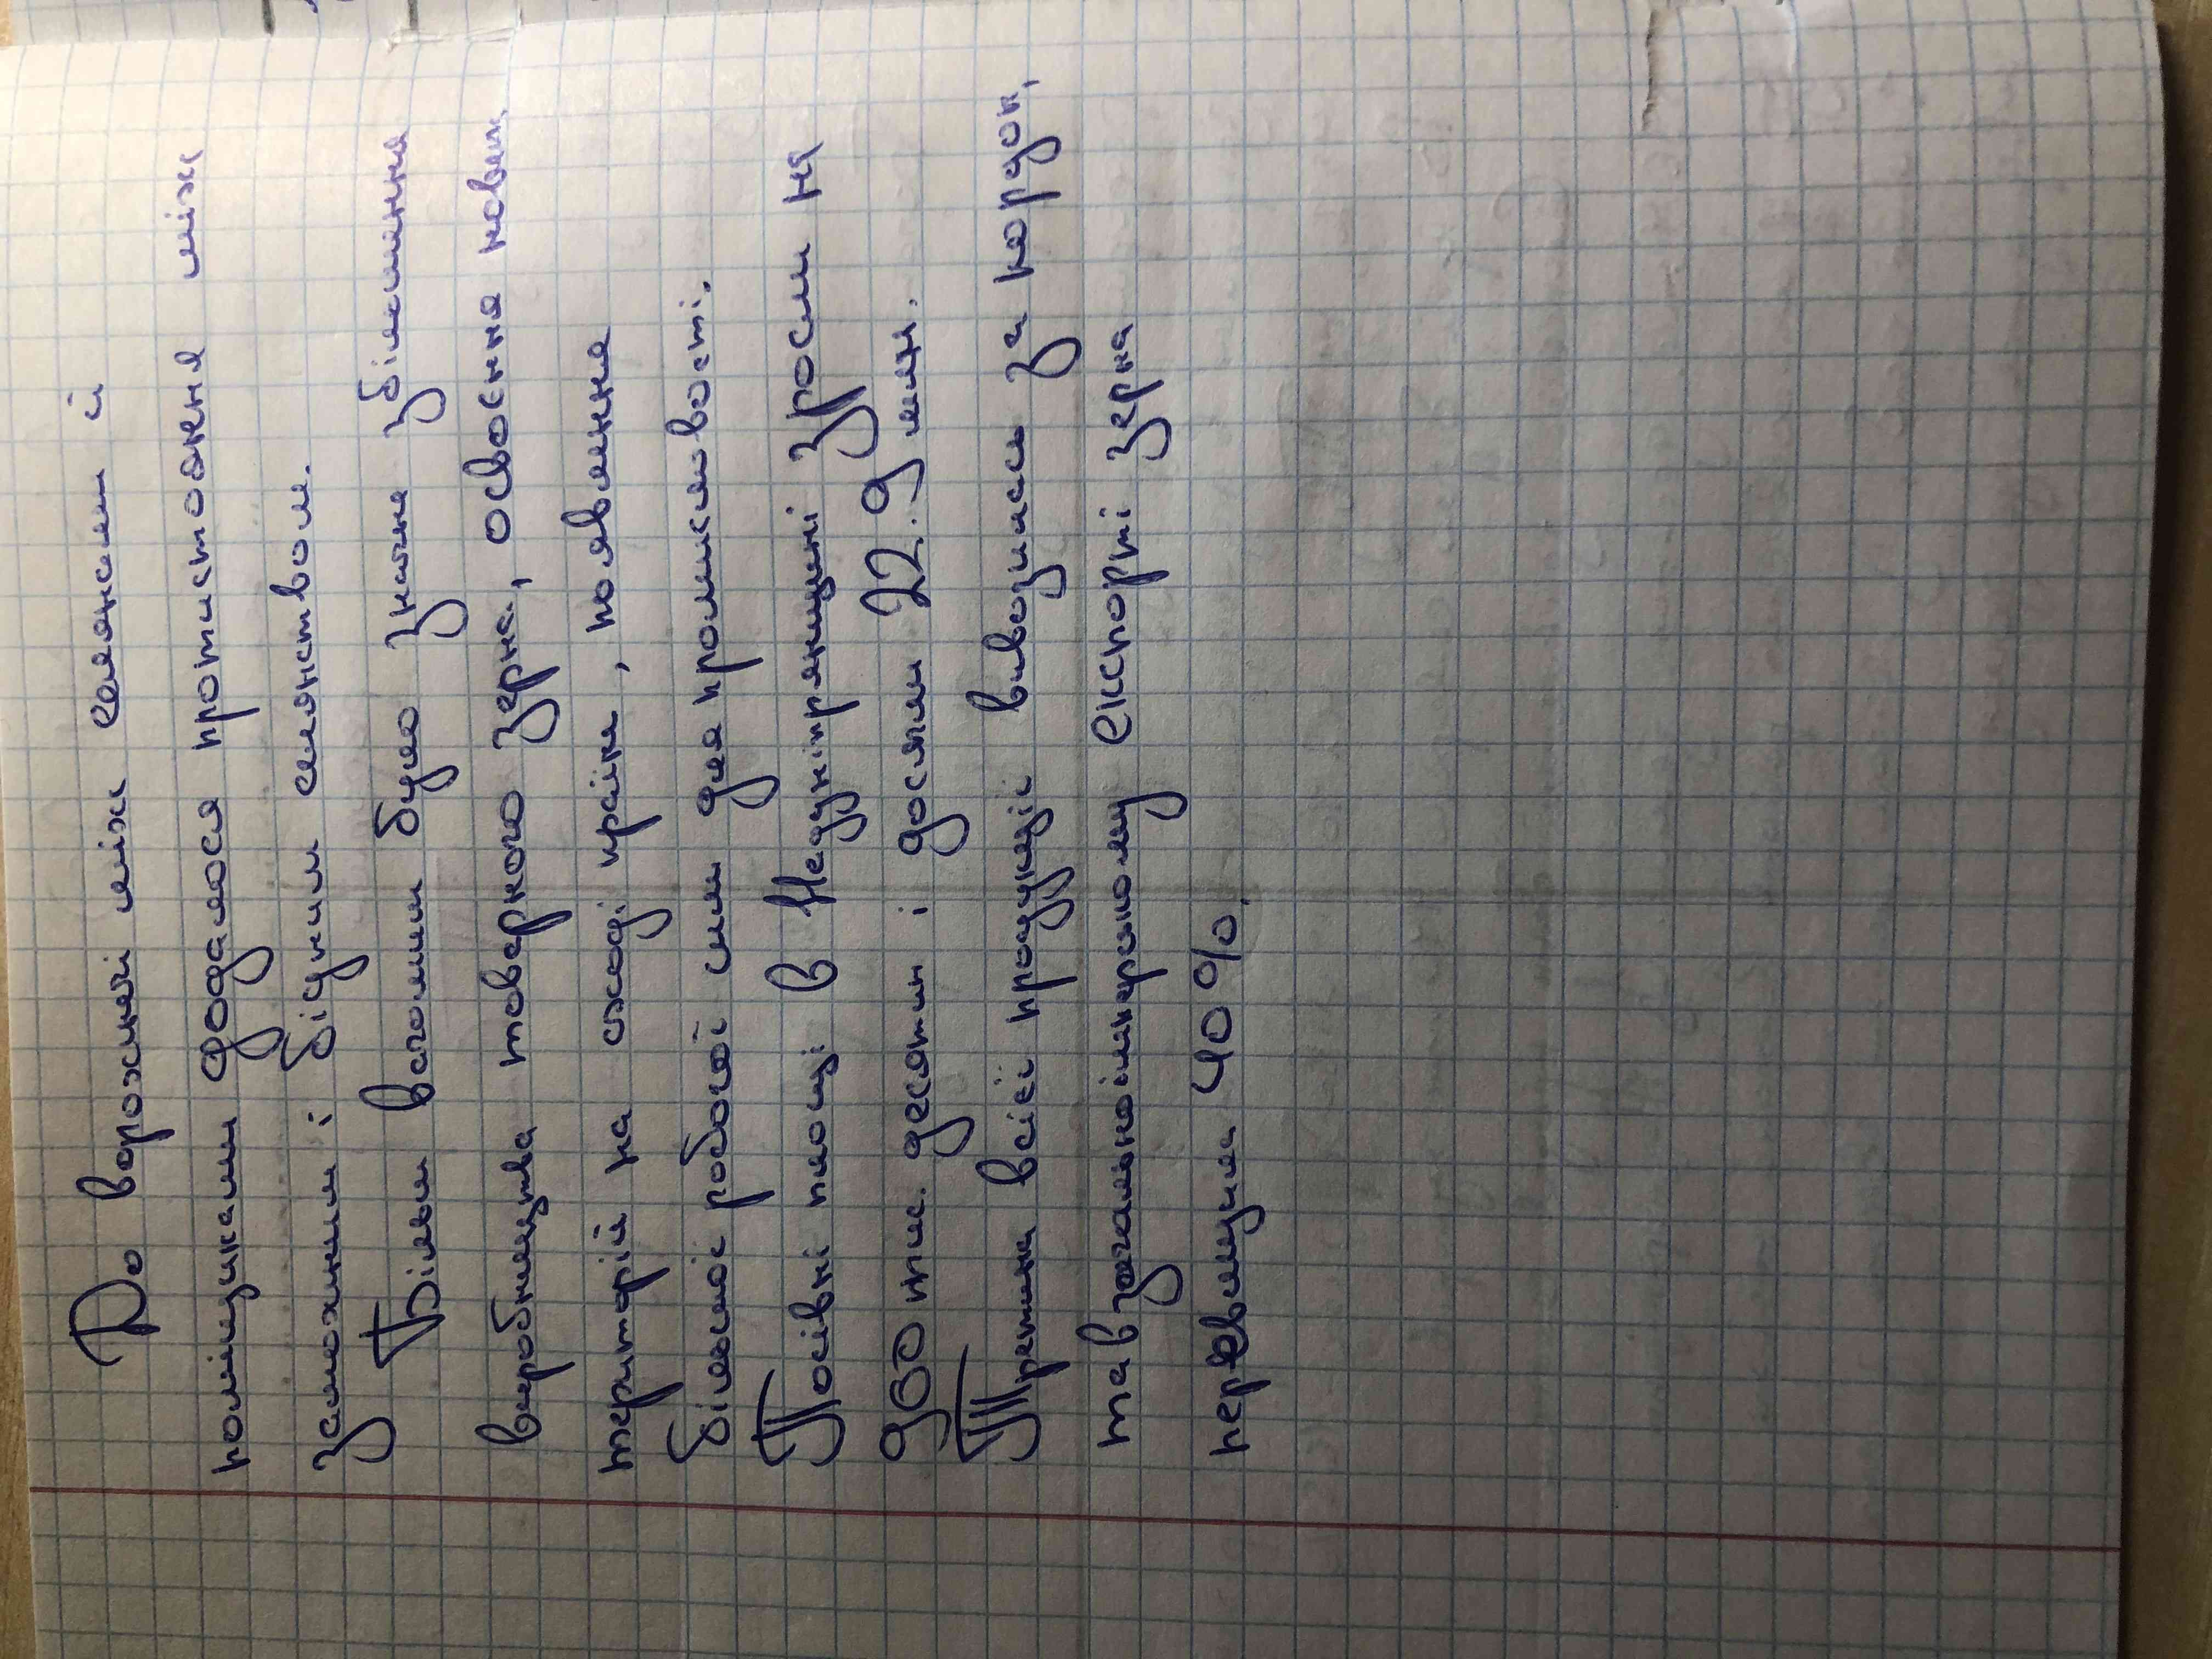 До ворожнечі між селянами й
поміщиками додалося протистояння між
заможним і бідним селянством.
Більш вагомим було значне збільшення
виробництва товарного зерна, освоєння нових
територій на сході країни, появлення
більшої робочої сили для промисловості.
Посівні площі в Наддніпрянщині зросли на
900 тис. десятин і досягли 22.9 млн.
Третина всієї продукції вивозилась за кордон,
та в загальноімперському експорті зерна
перевищила 40%.